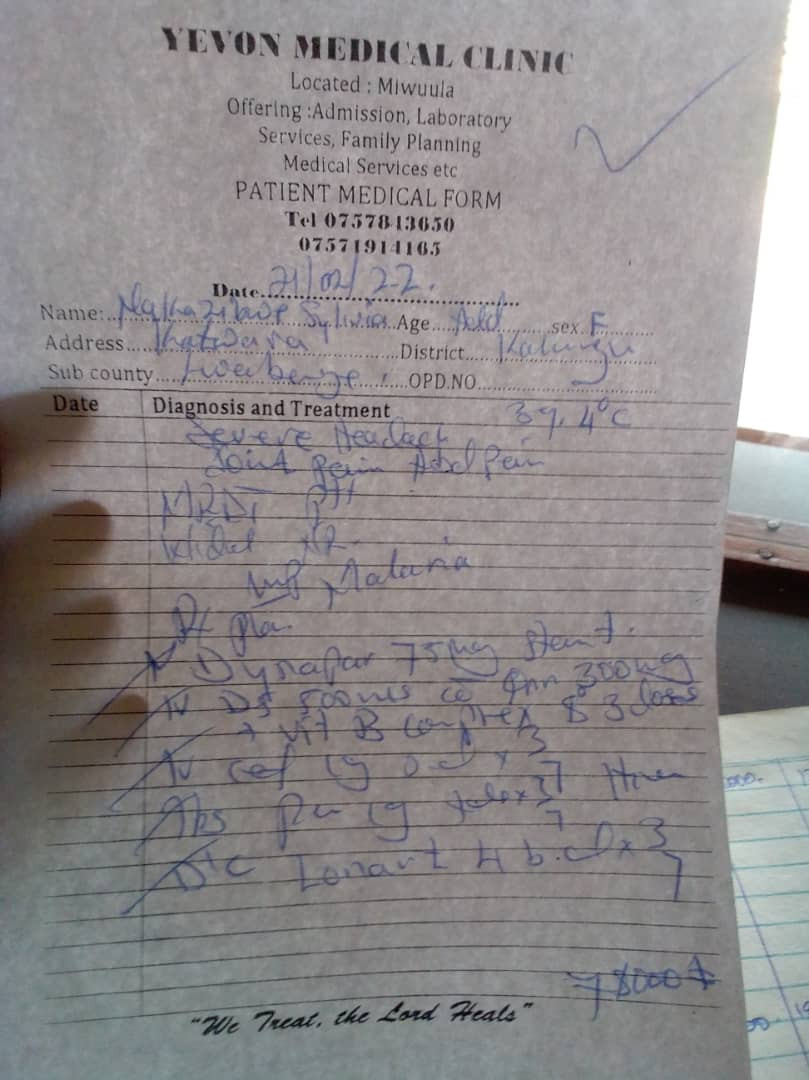 YEVON MEDICAL CLINIC
Located : Miwuula
Offering :Admission, Laboratory
Services, Family Planning
Medical Services etc
PATIENT MEDICAL FORM
Tel 0757843650
07571914165
Date 21/02/22.
Name: Sylvia Age Adt sex F
Address District Kalungu
Sub county OPD.NO.
Date Diagnosis and Treatment 39.4°C
Severe Headach
Joint Pain Abd Pain
MRDT
Widal NR
Malaria
Rx Plan
Dynapar 75mg stat.
IV D5 500mls 300mg
+ Vit B complex 8° 3 doses
IV cef 1g od x 3/7
Tabs 1g tds x 3/7
D/C Lonart 4 b.d x 3/7
78000
"We Treat, the Lord Heals"